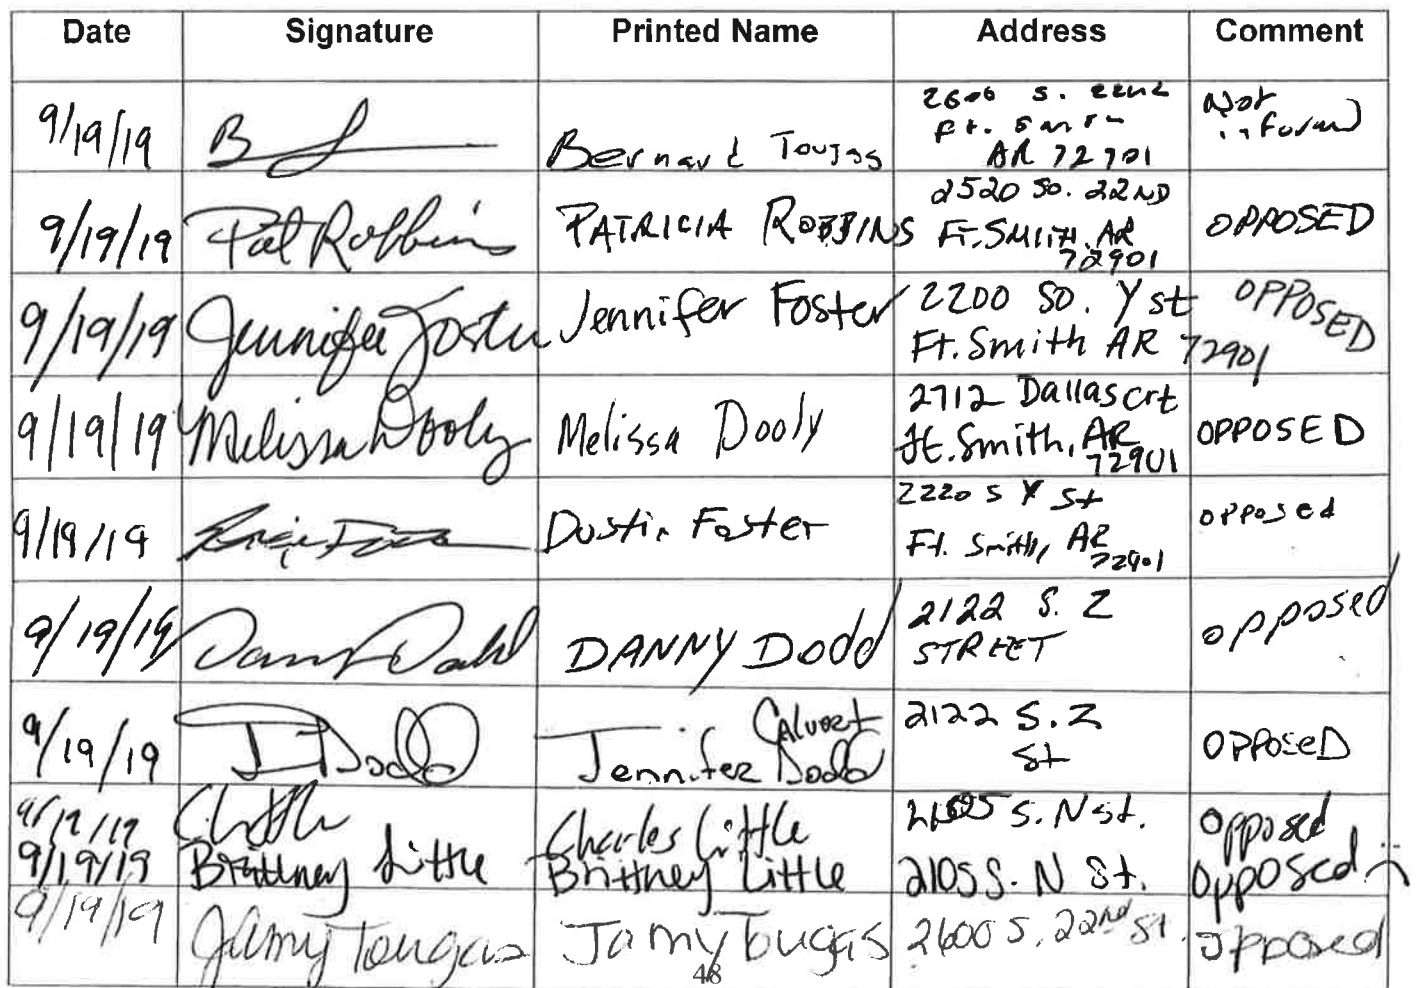 Date Signature Printed Name Address Comment
9/19/19 Bernard Tougas 2600 S. 22nd Ft. Smith AR 72701 Not informed
9/19/19 Pat Robbins PATRICIA ROBBINS 2520 So. 22ND Ft. Smith, AR 72901 OPPOSED
9/19/19 Jennifer Foster Jennifer Foster 2200 So. Y st Ft. Smith AR 72901 OPPOSED
9/19/19 Melissa Dooly Melissa Dooly 2712 Dallas Crt Ft. Smith, AR 72901 OPPOSED
9/19/19 Dustin Foster 2220 S Y St Ft. Smith, AR 72901 opposed
9/19/19 DANNY Dodd 2122 S. Z STREET opposed
9/19/19 J Dodd Jennifer Calvert Dodd 2122 S. Z St OPPOSED
9/19/19 Charles Little 2105 S. N st. Opposed
9/19/19 Brittney Little Brittney Little 2105 S. N St. Opposed :(
9/19/19 Jamy Tougas Jamy Tougas 2600 S. 22nd St. Opposed
48